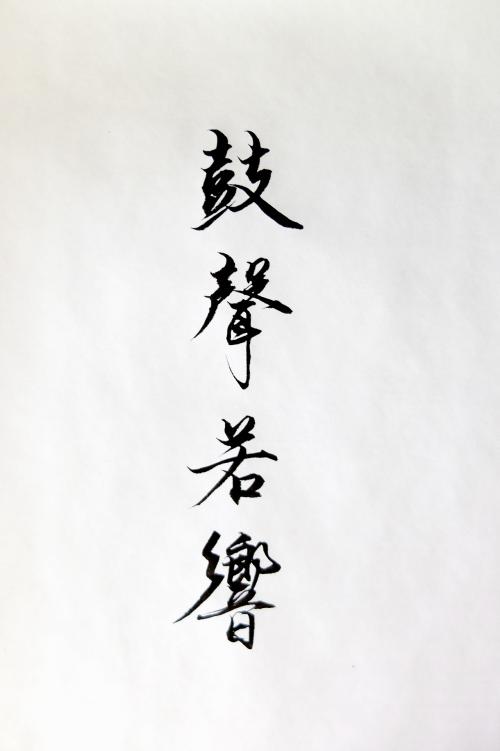 鼓聲若響